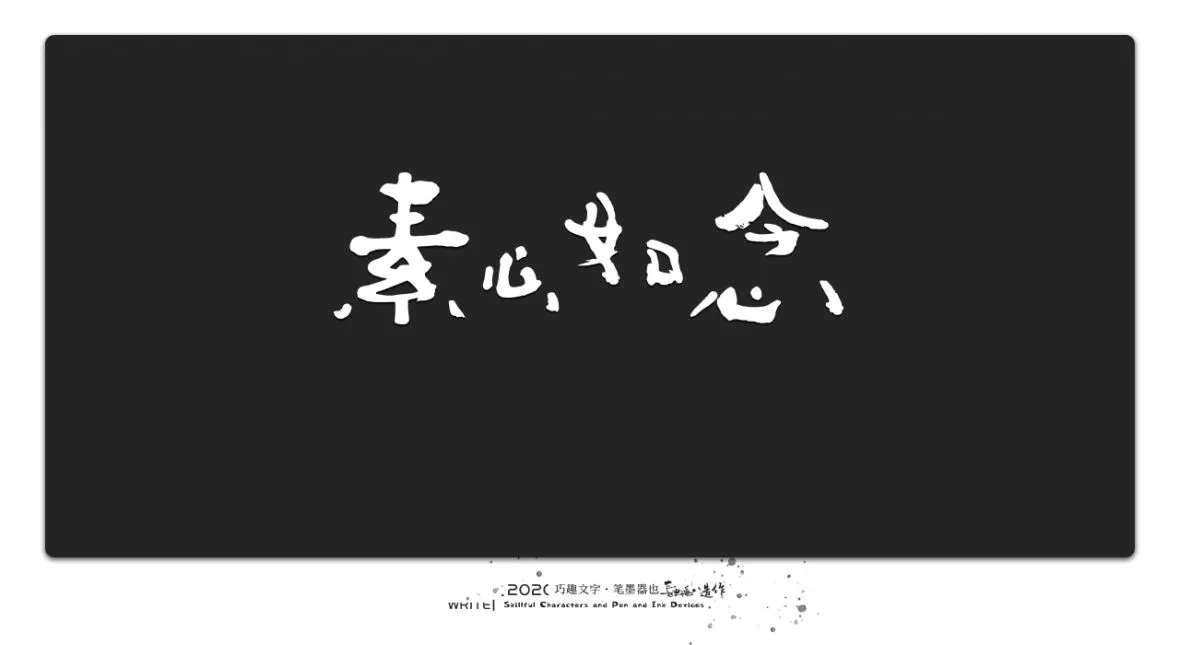 素心如念
2020 巧趣文字·笔墨器也 造作
WRITE Skillful Characters and Pen and Ink Devices